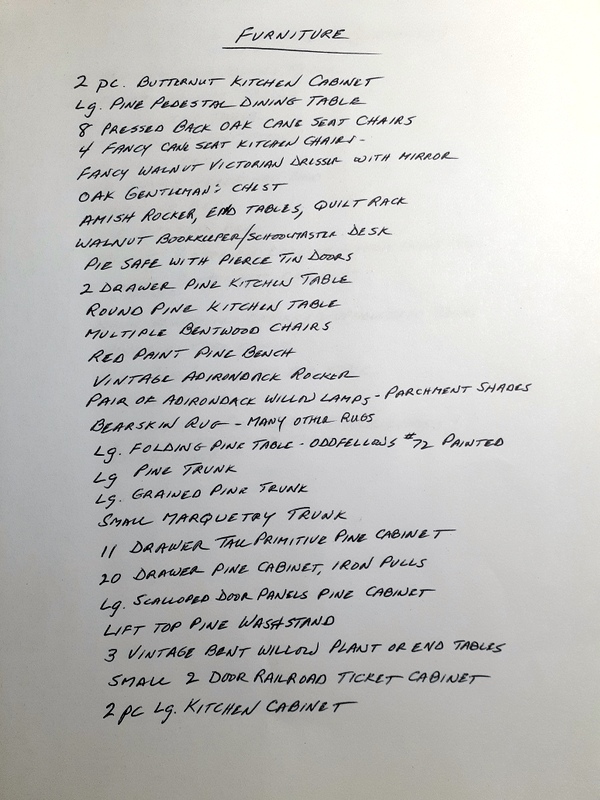 FURNITURE
2 PC. BUTTERNUT KITCHEN CABINET
Lg. PINE PEDESTAL DINING TABLE
8 PRESSED BACK OAK CANE SEAT CHAIRS
4 FANCY CANE SEAT KITCHEN CHAIRS-
FANCY WALNUT VICTORIAN DRESSER WITH MIRROR
OAK GENTLEMAN'S CHEST
AMISH ROCKER, END TABLES, QUILT RACK
WALNUT BOOKKEEPER/SCHOOLMASTER DESK
PIE SAFE WITH PIERCE TIN DOORS
2 DRAWER PINE KITCHEN TABLE
ROUND PINE KITCHEN TABLE
MULTIPLE BENTWOOD CHAIRS
RED PAINT PINE BENCH
VINTAGE ADIRONDACK ROCKER
PAIR OF ADIRONDACK WILLOW LAMPS - PARCHMENT SHADES
BEARSKIN RUG - MANY OTHER RUGS
Lg. FOLDING PINE TABLE - ODDFELLOWS #72 PAINTED
Lg PINE TRUNK
Lg. GRAINED PINE TRUNK
SMALL MARQUETRY TRUNK
11 DRAWER TALL PRIMITIVE PINE CABINET
20 DRAWER PINE CABINET, IRON PULLS
Lg. SCALLOPED DOOR PANELS PINE CABINET
LIFT TOP PINE WASHSTAND
3 VINTAGE BENT WILLOW PLANT OR END TABLES
SMALL 2 DOOR RAILROAD TICKET CABINET
2 PC Lg. KITCHEN CABINET